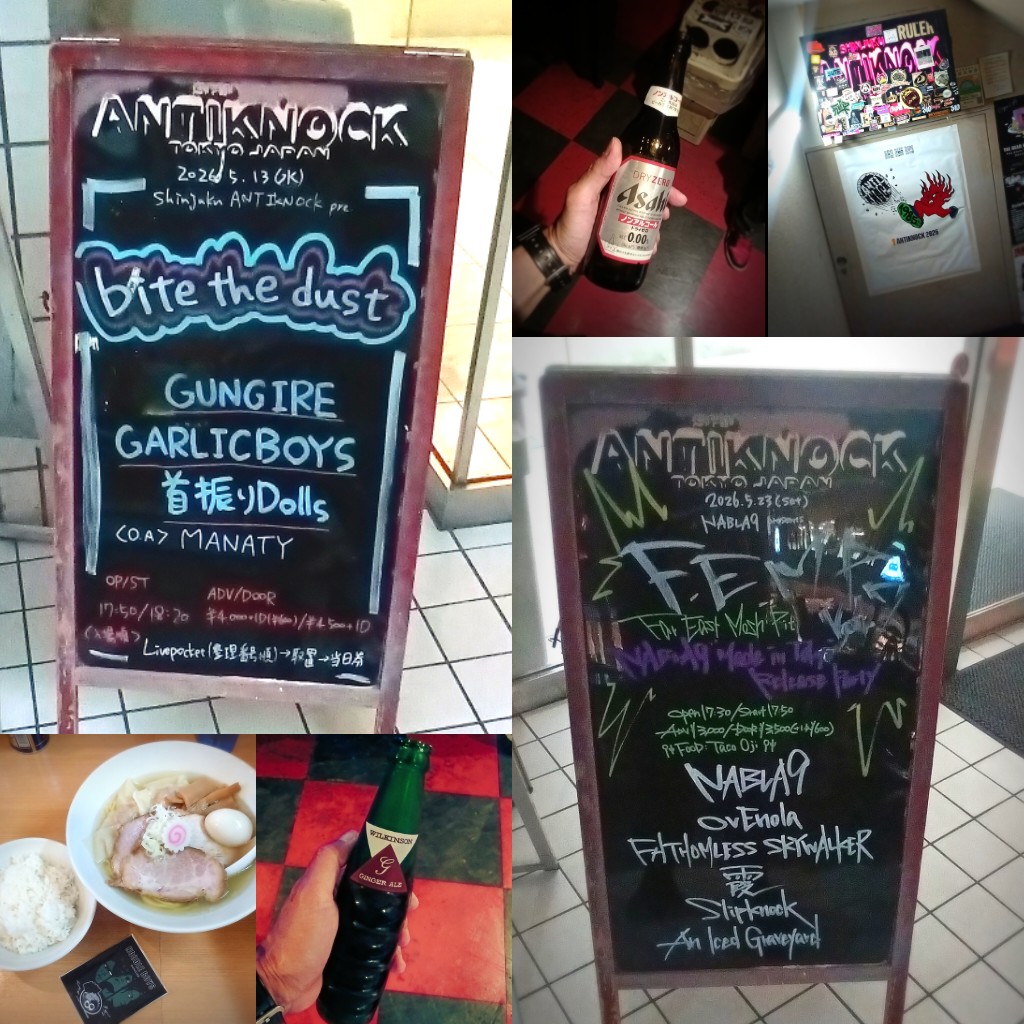 ANTIKNOCK
TOKYO JAPAN
2026.5.13(水)
Shinjuku ANTIKNOCK pre.
bite the dust
GUNGIRE
GARLICBOYS
首振りDolls
<O.A> MANATY
OP/ST
ADV/DOOR
17:50/18:20
¥4,000+1D(¥600)/¥4,500+1D
<入場順>
Livepocket(整理番号順)→取置→当日券
ノンアルコール
DRYZERO
Asahi
ノンアルコール
ドライゼロ
0.00%
RULER
ANTIKNOCK
ANTIKNOCK 2026
ANTIKNOCK
TOKYO JAPAN
2026.5.23(SAT)
NABLA9 presents
Far East Mosh Pit
NABLA9 Made in
Release Party
Open17:30/Start17:50
Adv¥3,000/Door¥3,500(+1d¥600)
Food: Taco Oji
NABLA9
OvEnola
FATHOMLESS SKYWALKER
霞
Slipknock
An Iced Graveyard
WILKINSON
G
GINGER ALE